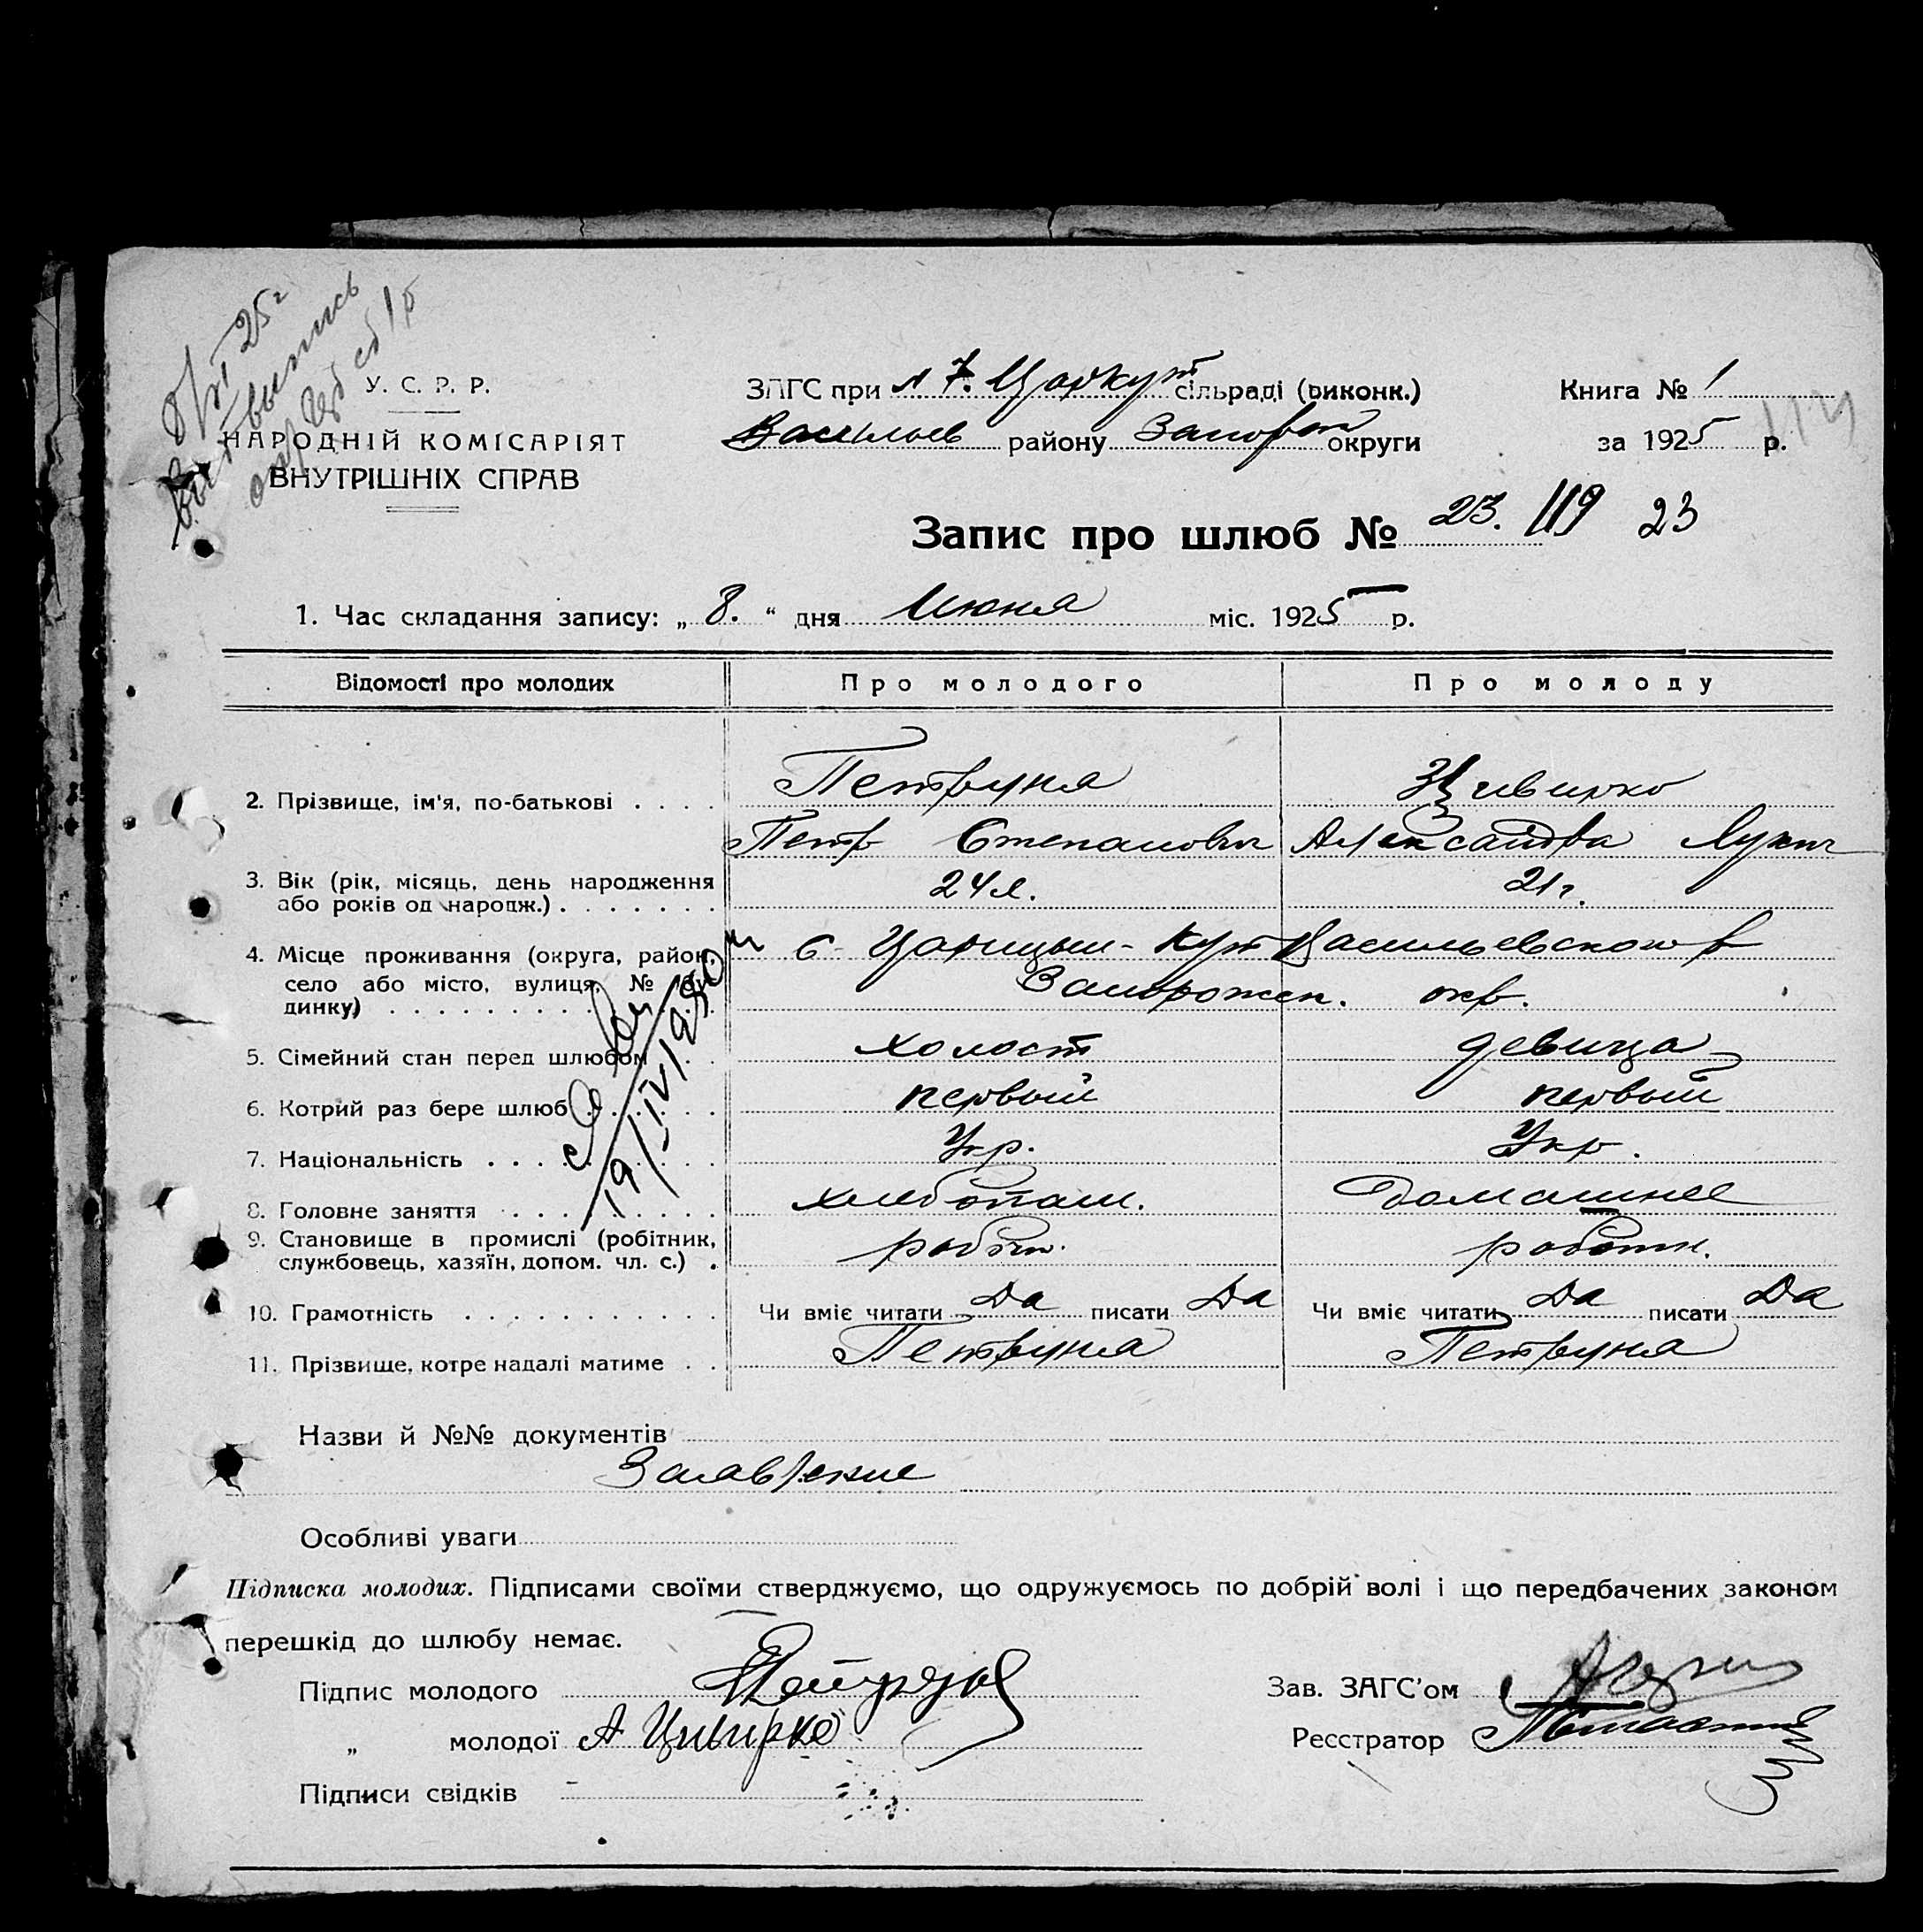 25г
выпись
У. С. Р. Р.
НАРОДНІЙ КОМІСАРІЯТ
ВНУТРІШНІХ СПРАВ
ЗАГС при Царкут сільраді (виконк.)
Васильев району Запорож округи
Книга № 1
за 1925 р.
Запис про шлюб № 23. 119 23
1. Час складання запису: „ 8. “ дня Июня міс. 1925 р.
Відомості про молодих Про молодого Про молоду
2. Прізвище, ім'я, по-батькові . . . . Петруня Цивирко
Петр Степанович Александра Лукич
3. Вік (рік, місяць, день народження
або років од народж.) . . . . . . . 24 л. 21 г.
4. Місце проживання (округа, район, с. Царицын-Кут Васильевского р
село або місто, вулиця, № бу-
динку) Запорожск. окр.
5. Сімейний стан перед шлюбом . . холост девица
6. Котрий раз бере шлюб . . . . первый первый
7. Національність . . . . Укр. Укр.
8. Головне заняття . . . . хлебопаш. Домашнее
9. Становище в промислі (робітник,
службовець, хазяїн, допом. чл. с.) . работн. работн.
19/IV 1980
10. Грамотність . . . . . . . . . . . Чи вміє читати Да писати Да Чи вміє читати Да писати Да
11. Прізвище, котре надалі матиме . . Петруня Петруня
Назви й №№ документів
Заявление
Особливі уваги
Підписка молодих. Підписами своїми стверджуємо, що одружуємось по добрій волі і що передбачених законом
перешкід до шлюбу немає.
Підпис молодого
Зав. ЗАГС'ом
„ молодої А Цивирко
Реєстратор
Підписи свідків